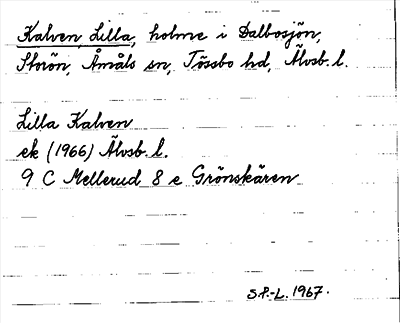 Kalven, Lilla, holme i Dalbosjön,
Storön, Åmåls sn, Tössbo hd, Älvsb. l.
Lilla Kalven
ek (1966) Älvsb. l.
9 C Mellerud 8 e Grönskären
S.F.-L. 1967.